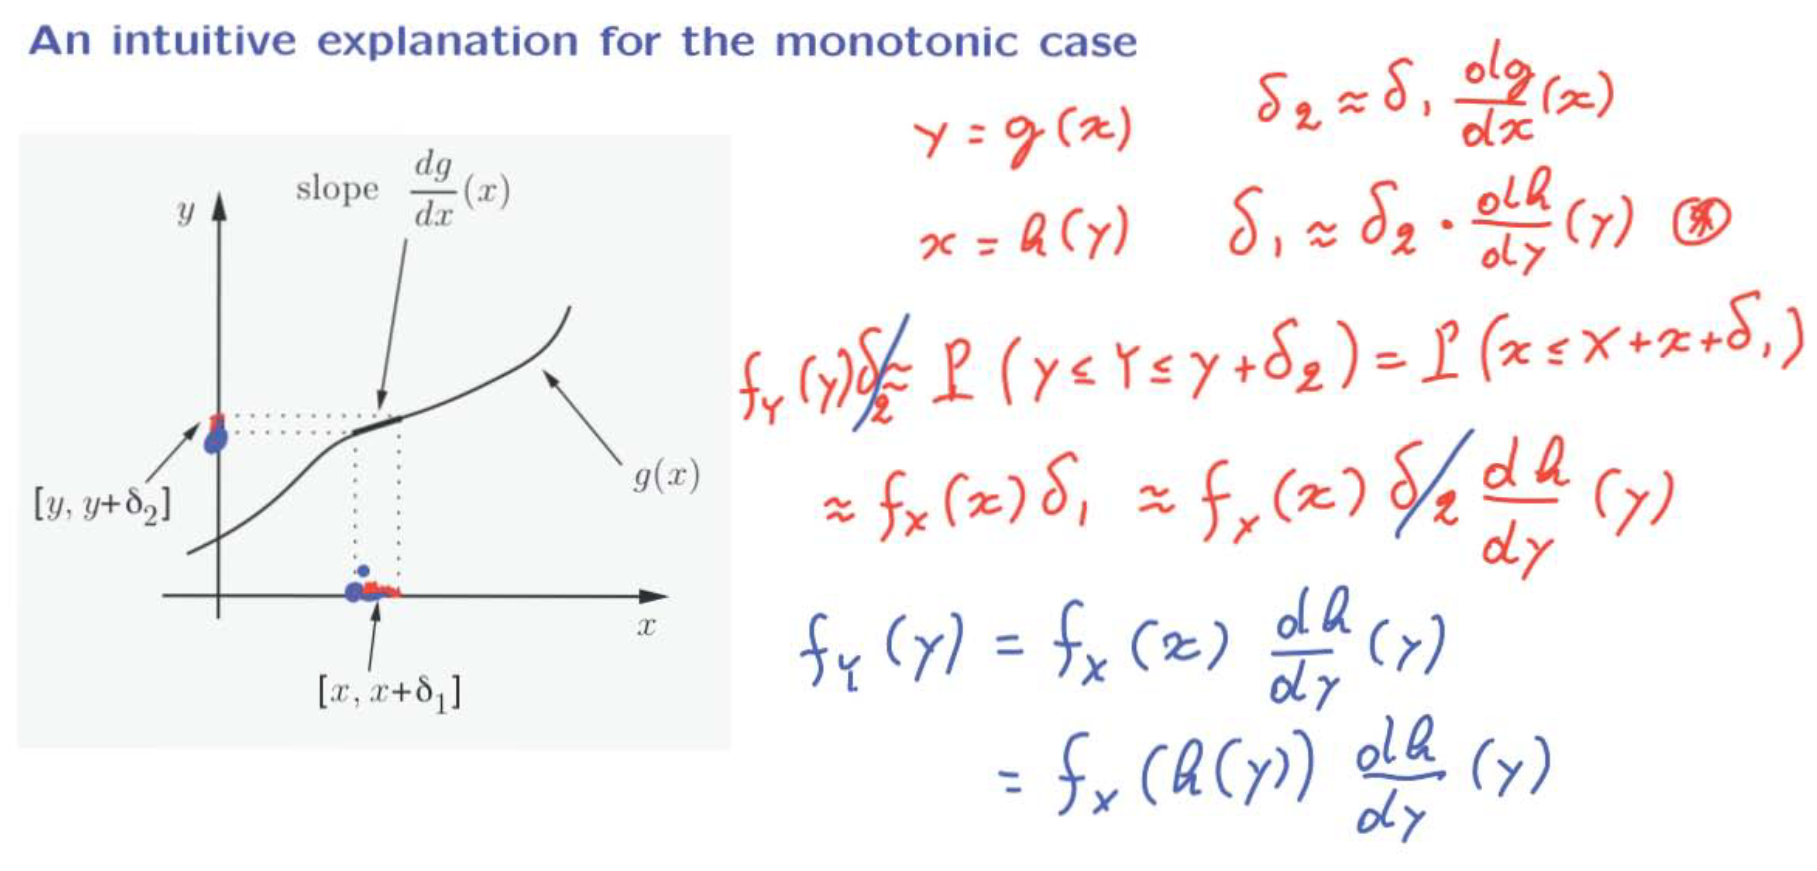 An intuitive explanation for the monotonic case
slope dg/dx (x)
y
g(x)
[y, y+δ₂]
x
[x, x+δ₁]
y = g(x)    δ₂ ≈ δ₁ dg/dx (x)
x = h(y)    δ₁ ≈ δ₂ · dh/dy (y) ⊛
f_Y(y) δ₂ ≈ P(y ≤ Y ≤ y + δ₂) = P(x ≤ X + x + δ₁)
≈ f_X(x) δ₁ ≈ f_X(x) δ₂ dh/dy (y)
f_Y(y) = f_X(x) dh/dy (y)
= f_X(h(y)) dh/dy (y)